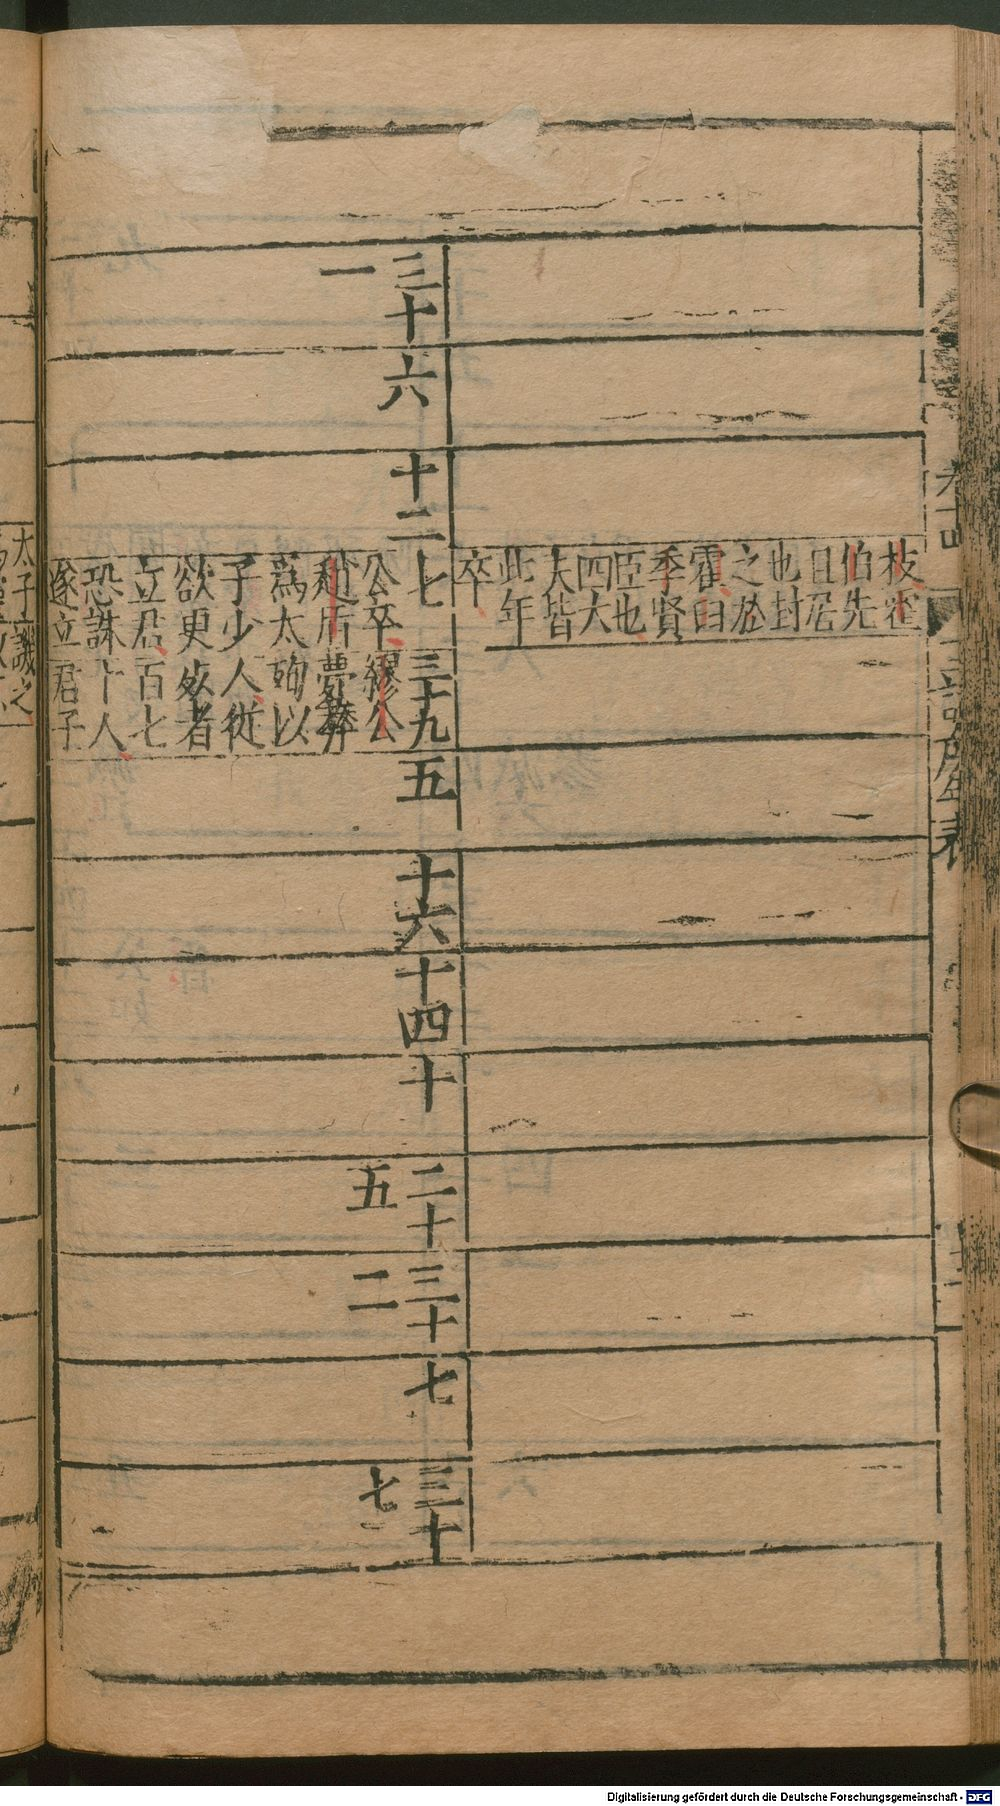 枝霍
伯先
且居
也封
之於
霍臼
季賢
臣也
四大
夫皆
此年
卒
三十
一
六
十二
七
公卒
趙盾
爲太
子少
欲更
立君
恐誅
遂立
三十九
繆公
殉以
人從
死者
百七
十人
君子
五
十六
十四
十
二十
五
三十
二
七
三十
七
太子
之
Digitalisierung gefördert durch die Deutsche Forschungsgemeinschaft - DFG